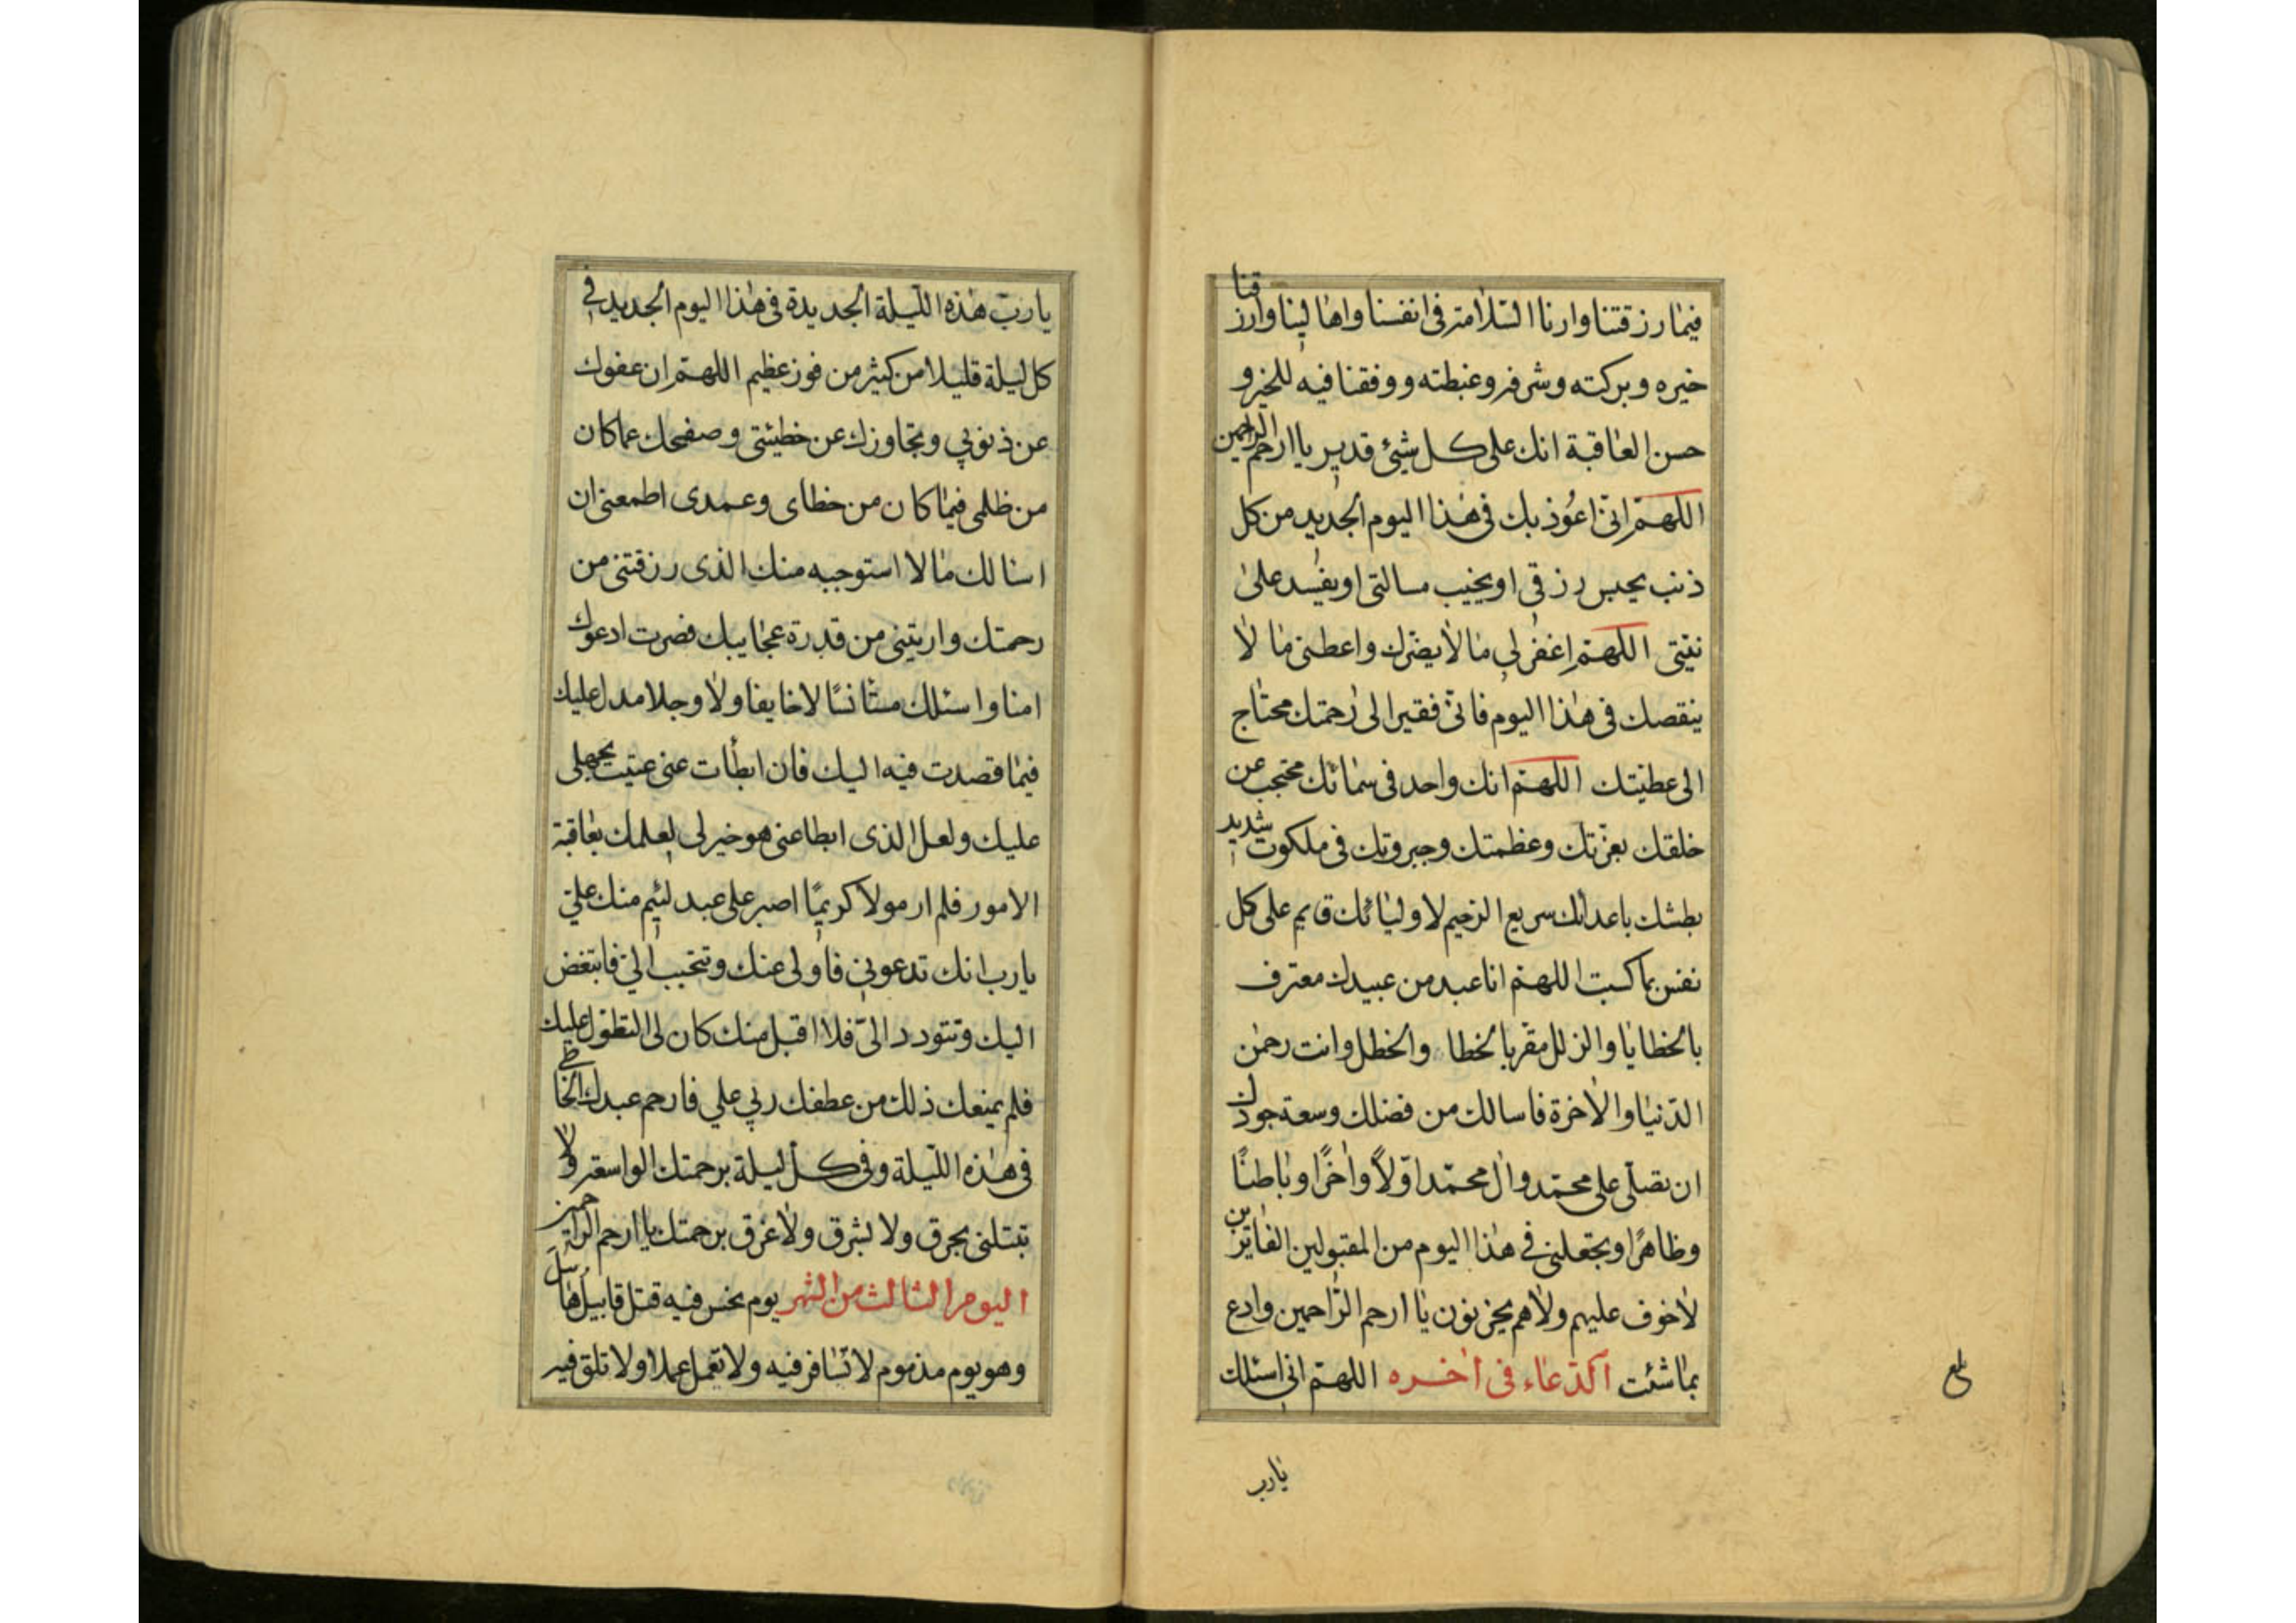 فيما رزقتنا وارنا السلامة في انفسنا واهالينا وارزقنا
خيره وبركته وشرفه وغبطته ووفقنا فيه للخير و
حسن العاقبة انك على كل شيئ قدير يا ارحم الراحمين
اللهم اني اعوذ بك في هذا اليوم الجديد من كل
ذنب يحبس رزقي او يخيب مسالتي او يفسد على
نيتي اللهم اغفر لي ما لا يضرك واعطني ما لا
ينقصك في هذا اليوم فاني فقير الى رحمتك محتاج
الى عطيتك اللهم انك واحد في سمائك محتجب عن
خلقك بعزتك وعظمتك وجبروتك في ملكوت شديد
بطشك باعدائك سريع الرحيم لاوليائك قايم على كل
نفس بما كسبت اللهم انا عبد من عبيدك معترف
بالخطايا والزلل مقر بالخطا والخطل وانت رحمن
الدنيا والاخرة فاسالك من فضلك وسعة جودك
ان تصلي على محمد وال محمد اولاً واخرًا وباطنًا
وظاهرًا وتجعلني في هذا اليوم من المقبولين الفائزين
لا خوف عليهم ولا هم يحزنون يا ارحم الراحمين وادع
بما شئت الدعاء في اخره اللهم اني اسئلك
يا رب
بلغ
يا رب هذه الليلة الجديدة في هذا اليوم الجديد في
كل ليلة قليلا من كثير من فوز عظيم اللهم ان عفوك
عن ذنوبي وتجاوزك عن خطيئتي وصفحك عما كان
من ظلمي فيما كان من خطاي وعمدى اطمعني ان
اسالك ما لا استوجبه منك الذى رزقتني من
رحمتك واريتني من قدرة عجايبك فصرت ادعوك
امنا واسئلك مستانسًا لا خايفا ولا وجلا مدل عليك
فيما قصدت فيه اليك فان ابطأت عني عتبت بجهلي
عليك ولعل الذى ابطا عني هو خير لى لعلمك بعاقبة
الامور فلم ار مولا كريمًا اصبر على عبد لئيم منك علي
يا رب انك تدعوني فاولى عنك وتتحبب الي فابتغض
اليك وتتودد الي فلا اقبل منك كان لي التطول عليك
فلم يمنعك ذلك من عطفك ربي علي فارحم عبدك الخاطي
في هذه الليلة وفي كل ليلة برحمتك الواسعة ولا
تبتلني بحرق ولا بشرق ولا غرق برحمتك يا ارحم الراحمين
اليوم الثالث من الشهر يوم نحس فيه قتل قابيل هابيل
وهو يوم مذموم لا تسافر فيه ولا تعمل عملا ولا تلق فيه